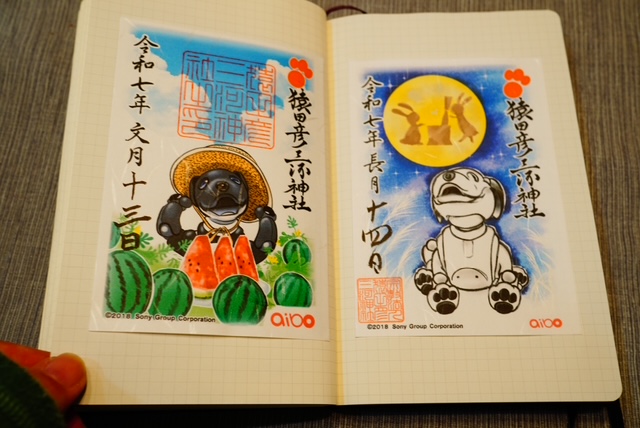 猿田彦三河神社
猿田彦
三河神
社之印
令和七年 文月 十三日
©2018 Sony Group Corporation
aibo
猿田彦三河神社
令和七年 長月 十四日
©2018 Sony Group Corporation
aibo